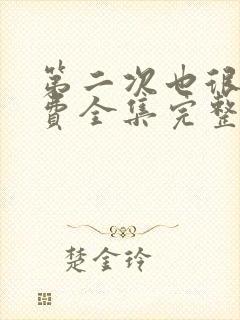 第二次也很
费全集完整
楚金玲